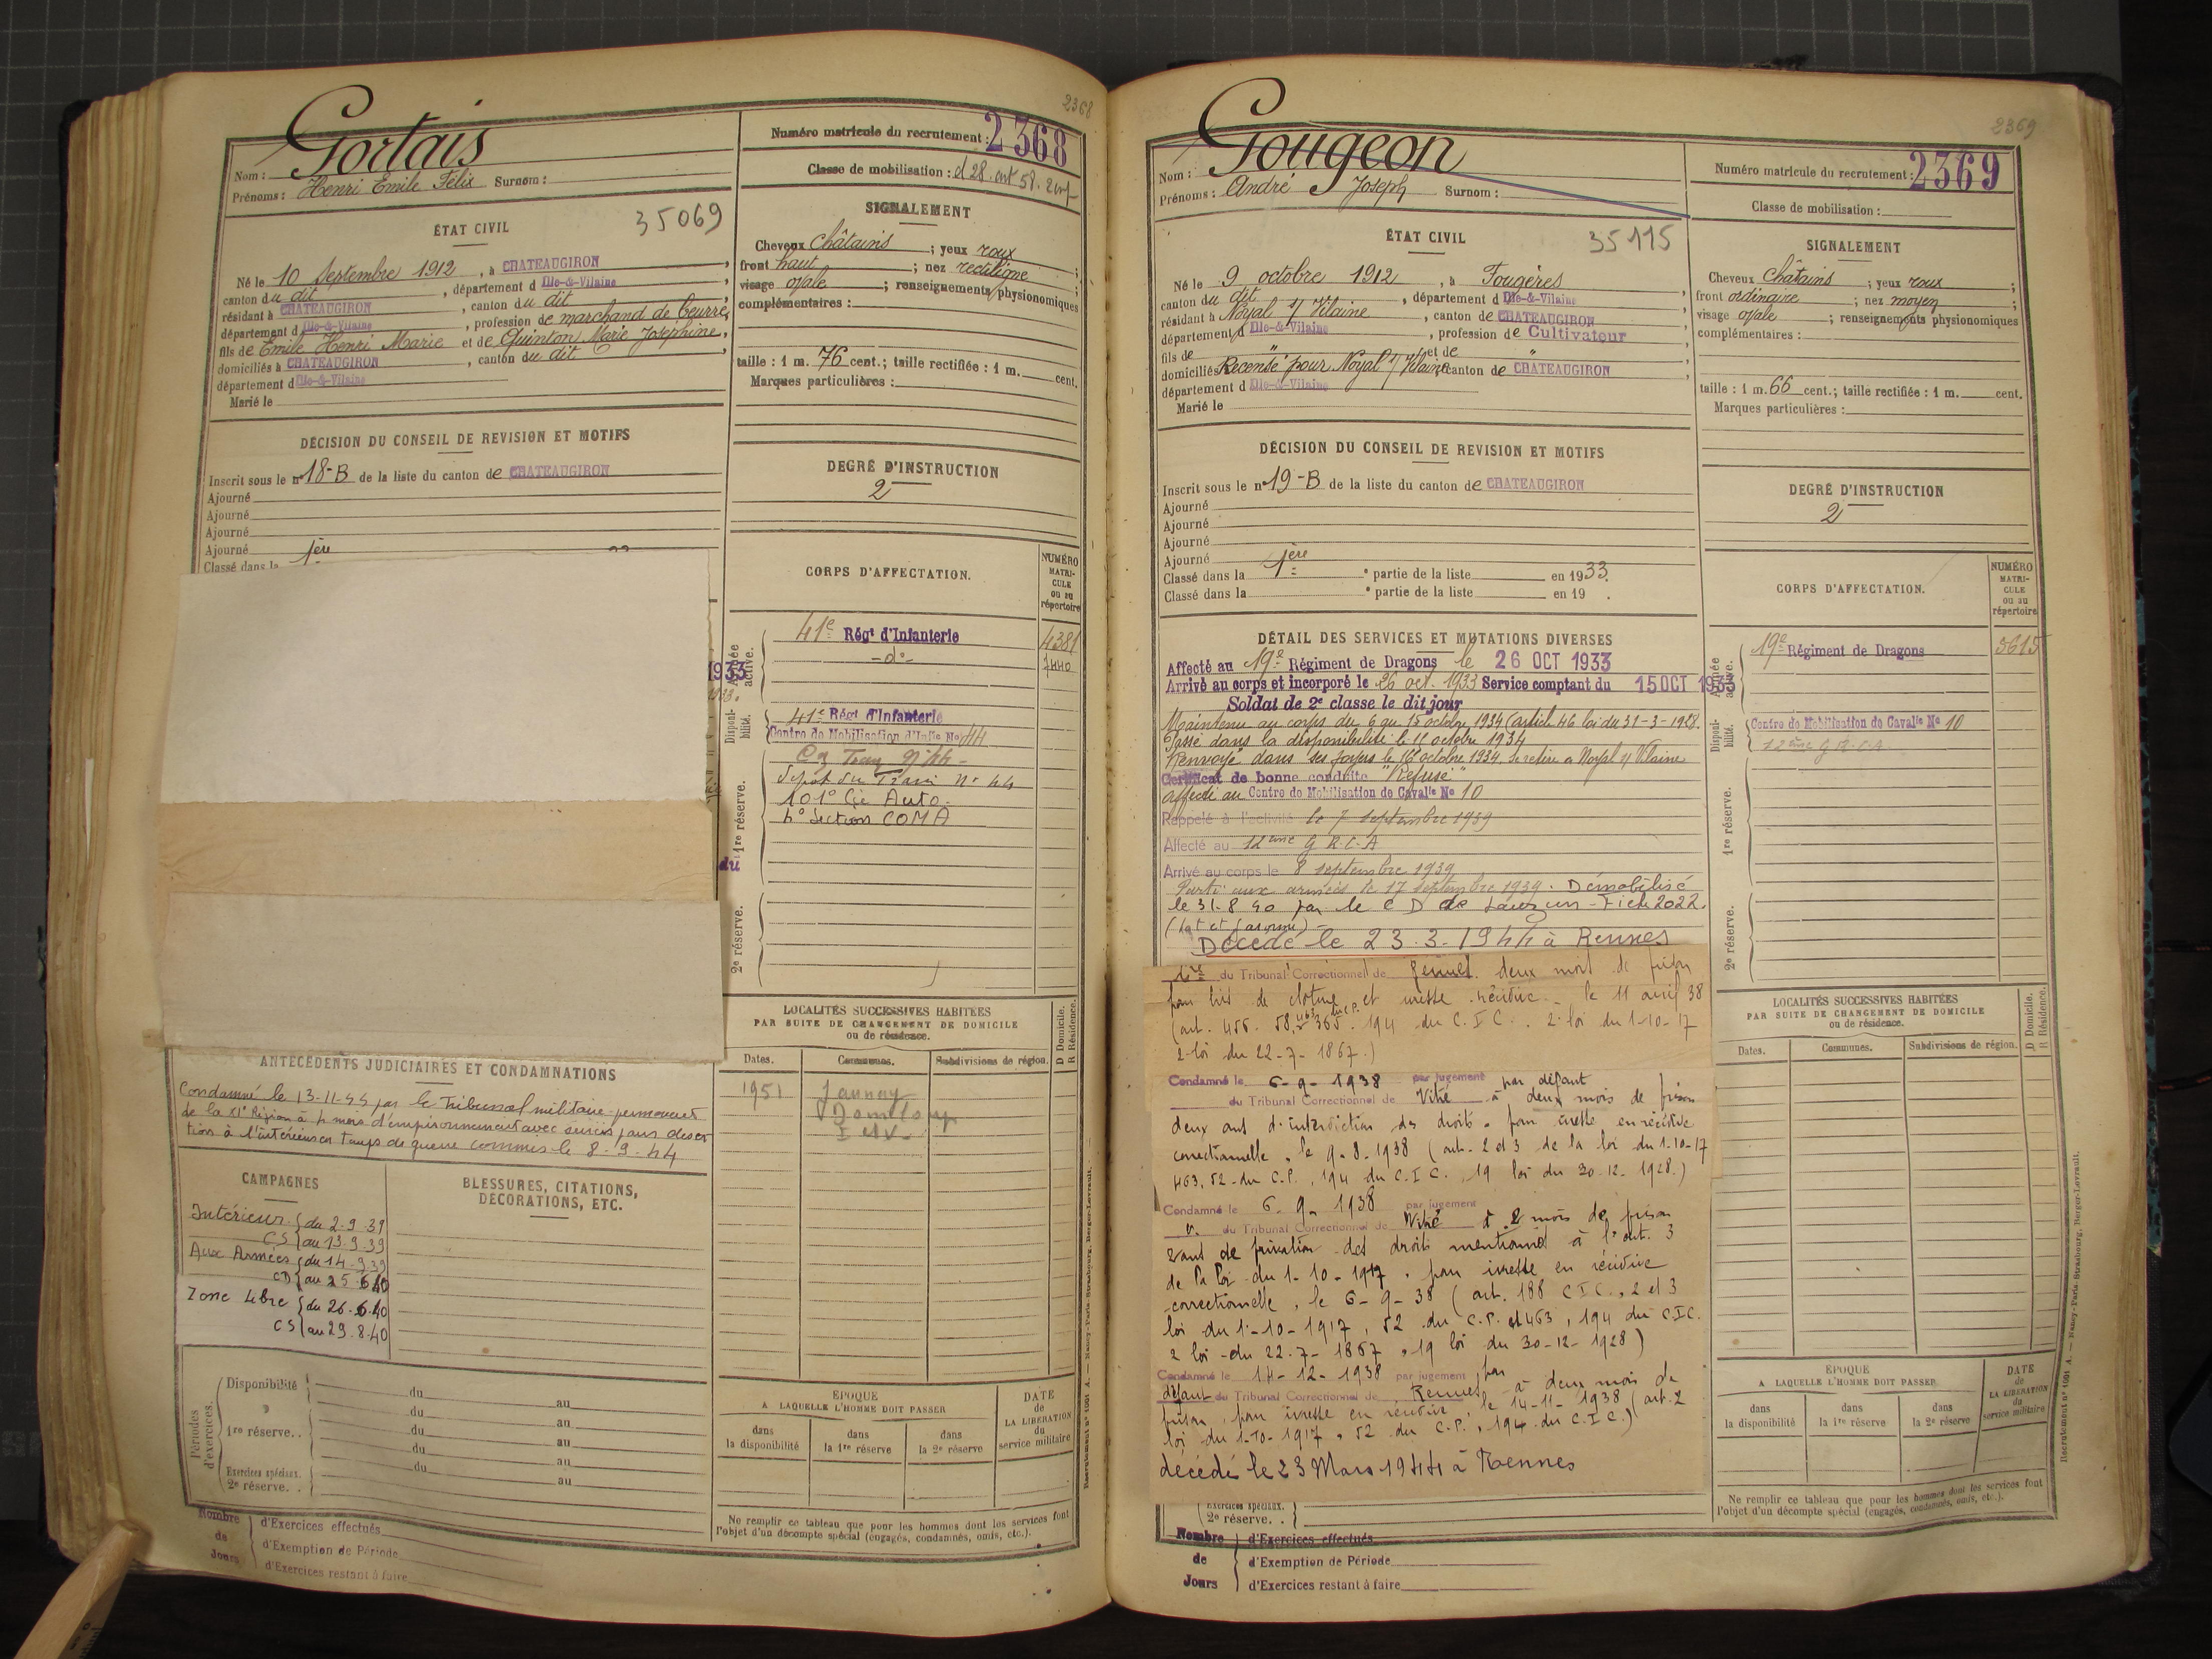 2368
Gortais
Nom :
Prénoms : Henri Emile Félix Surnom :
Numéro matricule du recrutement : 2368
Classe de mobilisation :
ÉTAT CIVIL
35069
Né le 10 Septembre 1912, à CHATEAUGIRON,
canton du dit, département d Ille-&-Vilaine
résidant à CHATEAUGIRON, canton du dit,
département d Ille-&-Vilaine, profession de marchand de beurre,
fils de Emile Henri Marie et de Quinton Marie Joséphine,
domiciliés à CHATEAUGIRON, canton du dit,
département d Ille-&-Vilaine
Marié le
SIGNALEMENT
Cheveux châtains ; yeux roux ;
front haut ; nez rectiligne ;
visage ovale ; renseignements physionomiques
complémentaires :
taille : 1 m. 76 cent.; taille rectifiée : 1 m. cent.
Marques particulières :
DÉCISION DU CONSEIL DE REVISION ET MOTIFS
Inscrit sous le n° 18-B de la liste du canton de CHATEAUGIRON
Ajourné
Ajourné
Ajourné
Ajourné
Classé dans la 1ère
DEGRÉ D'INSTRUCTION
2
CORPS D'AFFECTATION.
NUMÉRO MATRI-CULE ou au répertoire
1933
Armée active.
41e Régt d'Infanterie 4381
-d°- 7440
Disponi-bilité.
41e Régt d'Infanterie
Centre de Mobilisation d'Infie No 44
1re réserve.
Dépôt du Train N° 44
101° Cie Auto.
4° Section COMA
du
2e réserve.
LOCALITÉS SUCCESSIVES HABITÉES
PAR SUITE DE CHANGEMENT DE DOMICILE
ou de résidence.
D Domicile.
R Résidence.
Dates. Communes. Subdivisions de région.
1951 Jannay
ANTÉCÉDENTS JUDICIAIRES ET CONDAMNATIONS
Condamné le 13-11-44 par le Tribunal militaire permanent
de la XIe Région à 4 mois d'emprisonnement avec sursis pour déser
tion à l'intérieur en temps de guerre commis le 8-9-44
CAMPAGNES
BLESSURES, CITATIONS,
DÉCORATIONS, ETC.
Intérieur { du 2-9-39
CS { au 13-9-39
Aux Armées { du 14-9-39
CD { au 25-6-40
Zone Libre { du 26-6-40
CS { au 29-8-40
Périodes d'exercices.
Disponibilité du au
du au
1re réserve. . du au
du au
Exercices spéciaux. du au
2e réserve. . au
ÉPOQUE
A LAQUELLE L'HOMME DOIT PASSER
dans la disponibilité
dans la 1re réserve
dans la 2e réserve
DATE de LA LIBÉRATION du service militaire
Ne remplir ce tableau que pour les hommes dont les services font
l'objet d'un décompte spécial (engagés, condamnés, omis, etc.).
Recrutement n° 1001 A. — Nancy-Paris-Strasbourg, Berger-Levrault.
Nombre de Jours
d'Exercices effectués
d'Exemption de Période
d'Exercices restant à faire
2369
Gougeon
Nom :
Prénoms : André Joseph Surnom :
Numéro matricule du recrutement : 2369
Classe de mobilisation :
ÉTAT CIVIL
35115
Né le 9 octobre 1912, à Fougères,
canton du dit, département d Ille-&-Vilaine
résidant à Noyal s/ Vilaine, canton de CHATEAUGIRON
département d Ille-&-Vilaine, profession de Cultivateur
fils de " et de "
domiciliés Recensé pour Noyal s/ Vilaine canton de CHATEAUGIRON,
département d Ille-&-Vilaine
Marié le
SIGNALEMENT
Cheveux châtains ; yeux roux ;
front ordinaire ; nez moyen ;
visage ovale ; renseignements physionomiques
complémentaires :
taille : 1 m. 66 cent.; taille rectifiée : 1 m. cent.
Marques particulières :
DÉCISION DU CONSEIL DE REVISION ET MOTIFS
Inscrit sous le n° 19-B de la liste du canton de CHATEAUGIRON
Ajourné
Ajourné
Ajourné
Ajourné
Classé dans la 1ère partie de la liste en 1933.
Classé dans la e partie de la liste en 19 .
DEGRÉ D'INSTRUCTION
2
DÉTAIL DES SERVICES ET MUTATIONS DIVERSES
Affecté au 19e Régiment de Dragons le 26 OCT 1933
Arrivé au corps et incorporé le 26 oct. 1933 Service comptant du 15 OCT 1933
Soldat de 2e classe le dit jour
Maintenu au corps du 6 au 15 octobre 1934 (article 46 loi du 31-3-1928.
Passé dans la disponibilité le 11 octobre 1934
Renvoyé dans ses foyers le 16 octobre 1934 se retire à Noyal s/ Vilaine
Certificat de bonne conduite "Refusé"
affecté au Centre de Mobilisation de Cavalie No 10
Rappelé à l'activité le 7 septembre 1939
Affecté au 12ème G.R.C.A
Arrivé au corps le 8 septembre 1939
Parti aux armées le 17 septembre 1939. Démobilisé
le 31-8-40 par le C D de Lauzun - Fiche 2022.
(Lot et Garonne)
Décédé le 23-3-1944 à Rennes
CORPS D'AFFECTATION.
NUMÉRO MATRI-CULE ou au répertoire
Armée active.
19e Régiment de Dragons 3615
Disponi-bilité.
Centre de Mobilisation de Cavalie No 10
12ème G.R.C.A
1re réserve.
2e réserve.
du Tribunal Correctionnel de Rennes deux mois de prison
pour bris de clôture et ivresse récidive - le 11 avril 38
(art. 456. 58, 463 365. 194 du C.I.C. 2 loi du 1-10-17
2 loi du 22-7-1867.)
Condamné le 6-9-1938 par jugement par défaut
du Tribunal Correctionnel de Vitré à deux mois de prison
deux ans d'interdiction des droits - pour ivresse en récidive
correctionnelle, le 9-8-1938 (art. 2 et 3 de la loi du 1-10-17
463, 52 du C.P., 194 du C.I.C. 19 loi du 30-12-1928.)
Condamné le 6-9-1938 par jugement
du Tribunal Correctionnel de Vitré à 2 mois de prison
2 ans de privation des droits mentionnés à l'art. 3
de la loi du 1-10-1917, pour ivresse en récidive
correctionnelle, le 6-9-38 (art. 188 C.I.C., 2 et 3
loi du 1-10-1917, 52 du C.P. et 463, 194 du C.I.C.
2 loi du 22-7-1867, 19 loi du 30-12-1928)
Condamné le 14-12-1938 par jugement par
défaut du Tribunal Correctionnel de Rennes à deux mois de
prison, pour ivresse en récidive le 14-11-1938 (art. 2
loi du 1-10-1917, 52 du C.P., 194 du C.I.C.)
décédé le 23 Mars 1944 à Rennes
LOCALITÉS SUCCESSIVES HABITÉES
PAR SUITE DE CHANGEMENT DE DOMICILE
ou de résidence.
D Domicile.
R Résidence.
Dates. Communes. Subdivisions de région.
ÉPOQUE
A LAQUELLE L'HOMME DOIT PASSER
dans la disponibilité
dans la 1re réserve
dans la 2e réserve
DATE de LA LIBÉRATION du service militaire
Exercices spéciaux.
2e réserve. .
Ne remplir ce tableau que pour les hommes dont les services font
l'objet d'un décompte spécial (engagés, condamnés, omis, etc.).
Recrutement n° 1001 A. — Nancy-Paris-Strasbourg, Berger-Levrault.
Nombre de Jours
d'Exercices effectués
d'Exemption de Période
d'Exercices restant à faire